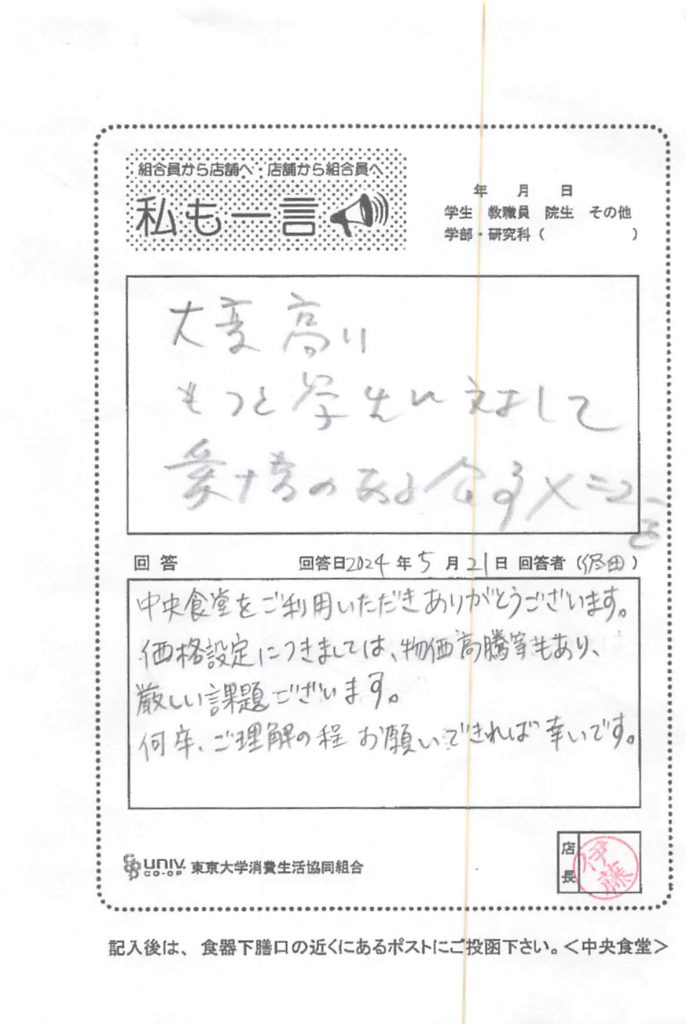 組合員から店舗へ・店舗から組合員へ
私も一言
年 月 日
学生 教職員 院生 その他
学部・研究科（ ）
大変高い
もっと学生に対して
愛情のある
回答 回答日2024年5月21日 回答者（ 田）
中央食堂をご利用いただきありがとうございます。
価格設定につきましては、物価高騰等もあり、
厳しい課題ございます。
何卒、ご理解の程 お願いできれば幸いです。
UNIV. CO-OP 東京大学消費生活協同組合
店長 伊藤
記入後は、食器下膳口の近くにあるポストにご投函下さい。＜中央食堂＞